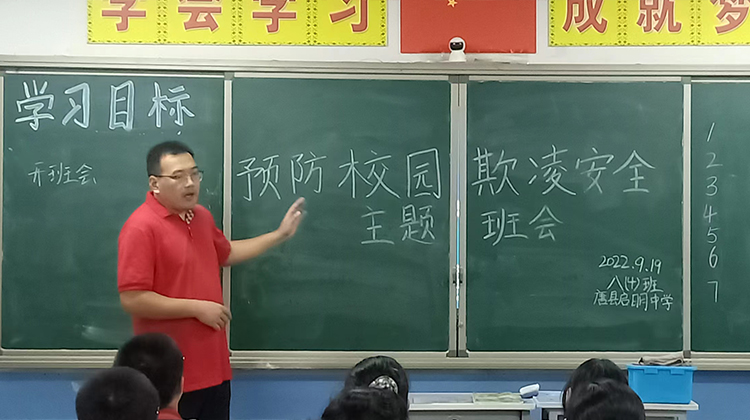 学会学习
成就梦
学习目标
开班会
预防校园欺凌安全
主题班会
2022.9.19
八(4)班
唐县启明中学
1
2
3
4
5
6
7